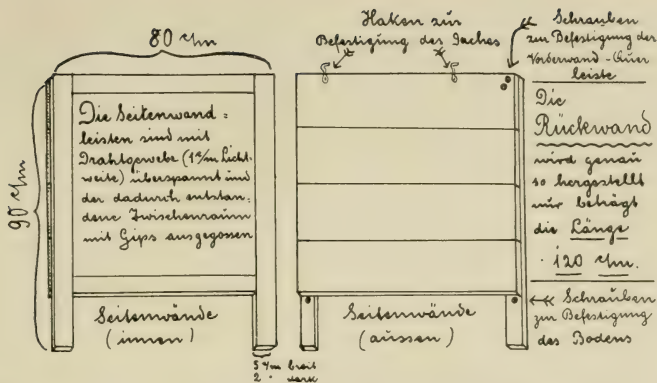 80 c/m
90 c/m
Die Seitenwand=
leisten sind mit
Drahtgewebe (1 c/m Licht-
weite) überspannt und
der dadurch entstan-
dene Zwischenraum
mit Gips ausgegossen
Seitenwände
(innen)
5 c/m breit
2 " stark
Haken zur
Befestigung des Daches
Seitenwände
(aussen)
Schrauben
zur Befestigung der
Vorderwand-Quer
leiste
Die
Rückwand
wird genau
so hergestellt
nur beträgt
die Länge
120 c/m.
Schrauben
zur Befestigung
des Bodens